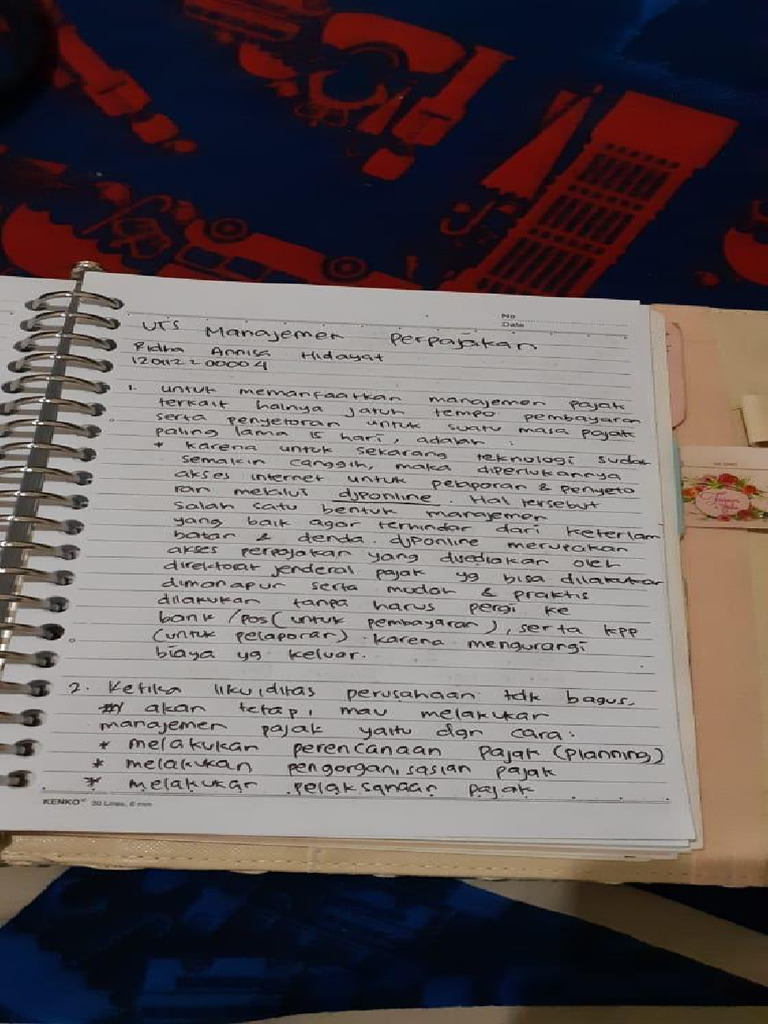 No
Date
UTS Manajemen Perpajakan
Ridha Annisa Hidayat
1. untuk memanfaatkan manajemen pajak
terkait halnya jatuh tempo pembayaran
serta penyetoran untuk suatu masa pajak
paling lama 15 hari, adalah :
* karena untuk sekarang teknologi sudah
semakin canggih, maka diperlukannya
akses internet untuk pelaporan & penyeto
ran melalui djponline. Hal tersebut
salah satu bentuk manajemen
yang baik agar terhindar dari keterlam
batan & denda. djponline merupakan
akses perpajakan yang disediakan oleh
direktorat jenderal pajak yg bisa dilakukan
dimanapun serta mudah & praktis
dilakukan tanpa harus pergi ke
bank /pos (untuk pembayaran), serta KPP
(untuk pelaporan). karena mengurangi
biaya yg keluar.
2. Ketika likuiditas perusahaan tdk bagus,
akan tetapi mau melakukan
manajemen pajak yaitu dgn cara:
* melakukan perencanaan pajak (planning)
* melakukan pengorganisasian pajak
* melakukan pelaksanaan pajak
KENKO 30 Lines, 6 mm